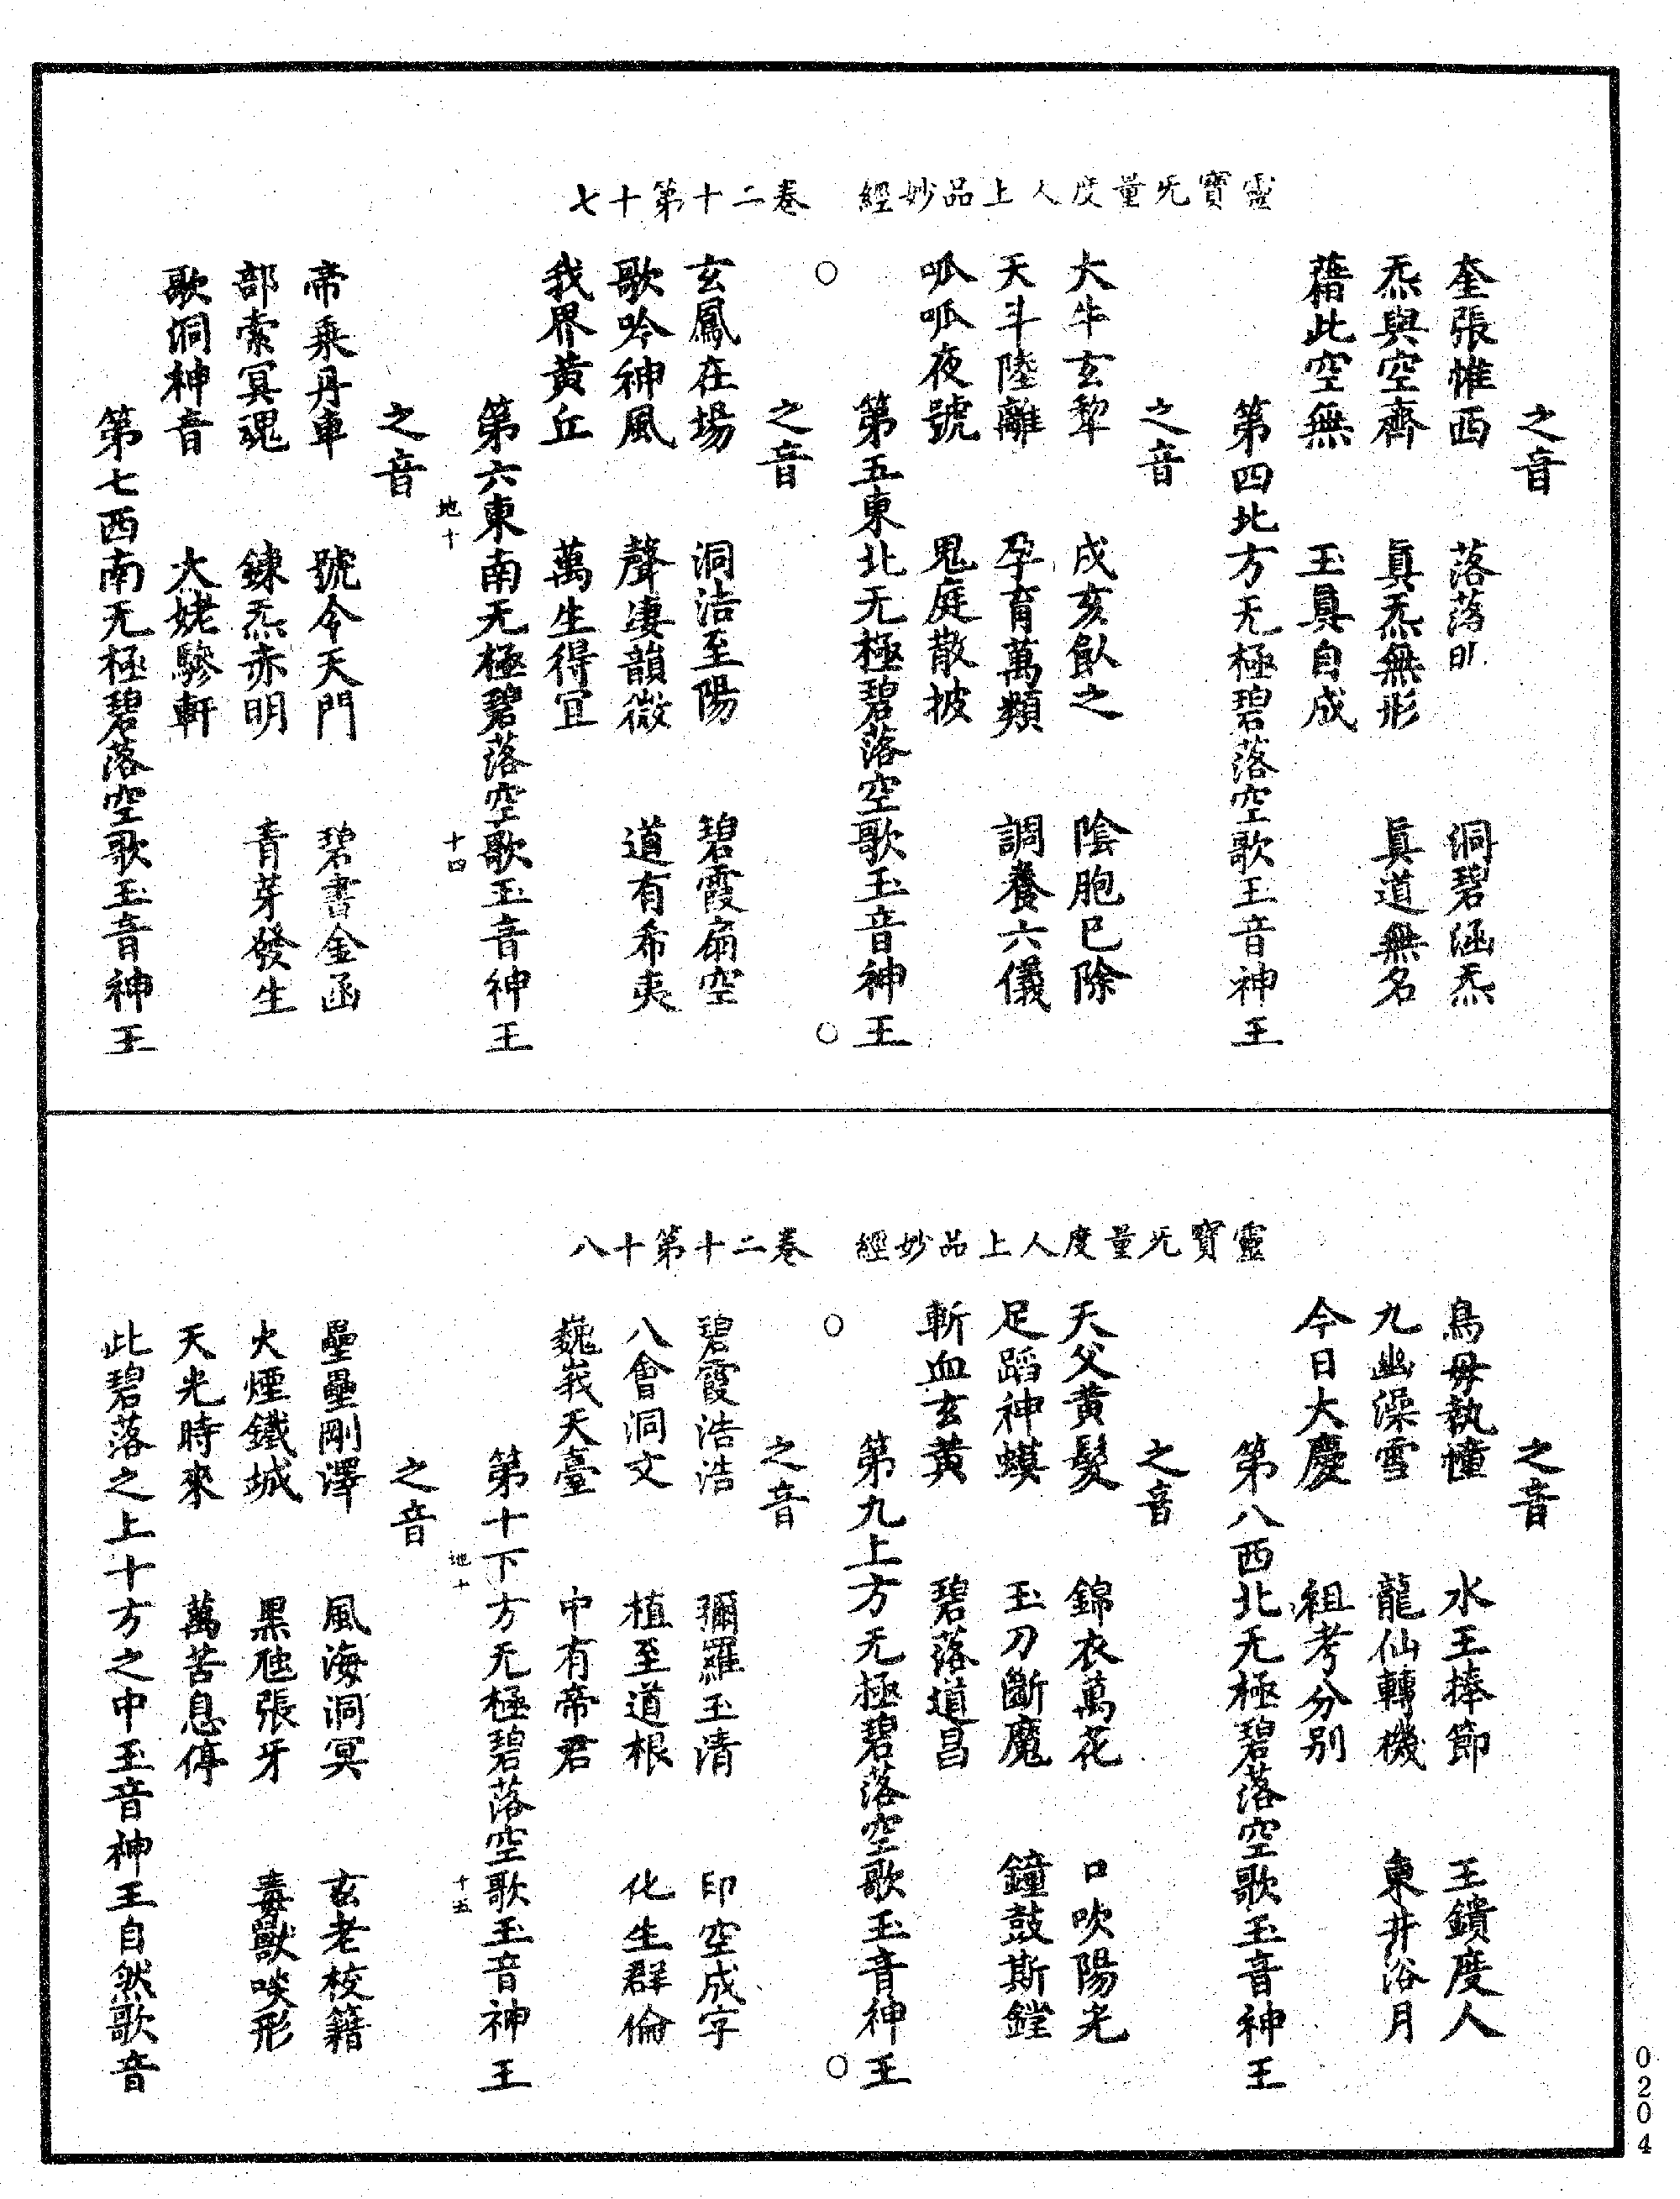 靈寶无量度人上品妙經　卷二十第十七
之音
奎張惟西　落落　　洞碧涵炁
炁與空齊　真炁無形　真道無名
藉此空無　玉真自成
第四北方无極碧落空歌玉音神王
之音
大牛玄犂　戌亥飲之　陰胞已除
天斗陸離　孕育萬類　調養六儀
呱呱夜號　鬼庭散披
第五東北无極碧落空歌玉音神王
○　○
之音
玄鳳在場　洞洁至陽　碧霞扇空
歌吟神風　聲凄韻微　道有希夷
我界黃丘　萬生得宜
第六東南无極碧落空歌玉音神王
地十　十四
之音
帝乘丹車　號令天門　碧書金函
部索冥魂　鍊炁赤明　青芽發生
歌洞神音　大姥驂軒
第七西南无極碧落空歌玉音神王
靈寶无量度人上品妙經　卷二十第十八
之音
鳥母執幢　水王捧節　王鐼度人
九幽澡雪　龍仙轉機　東井浴月
今日大慶　祖考分別
第八西北无極碧落空歌玉音神王
之音
天父黃髮　錦衣萬花　口吹陽光
足蹈神蟆　玉刀斷魔　鐘鼓斯鏜
斬血玄黃　碧落道昌
第九上方无極碧落空歌玉音神王
○　○
之音
碧霞浩浩　彌羅玉清　印空成字
八會洞文　植至道根　化生群倫
巍峩天臺　中有帝君
第十下方无極碧落空歌玉音神王
地十　十五
之音
壘壘剛澤　風海洞冥　玄老校籍
火煙鐵城　黑虵張牙　毒獸啖形
天光時來　萬苦息停
此碧落之上十方之中玉音神王自然歌音
0204